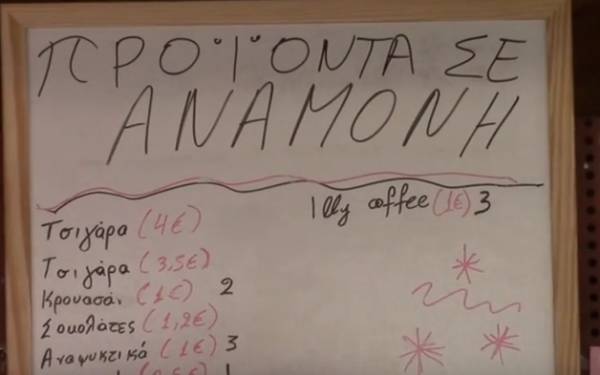 ΠΡΟΪΟΝΤΑ ΣΕ
ΑΝΑΜΟΝΗ
Illy coffee (1€) 3
Τσιγάρα (4€)
Τσιγάρα (3,5€)
Κρουασάν (1€) 2
Σοκολάτες (1,2€)
Αναψυκτικά (1€) 3